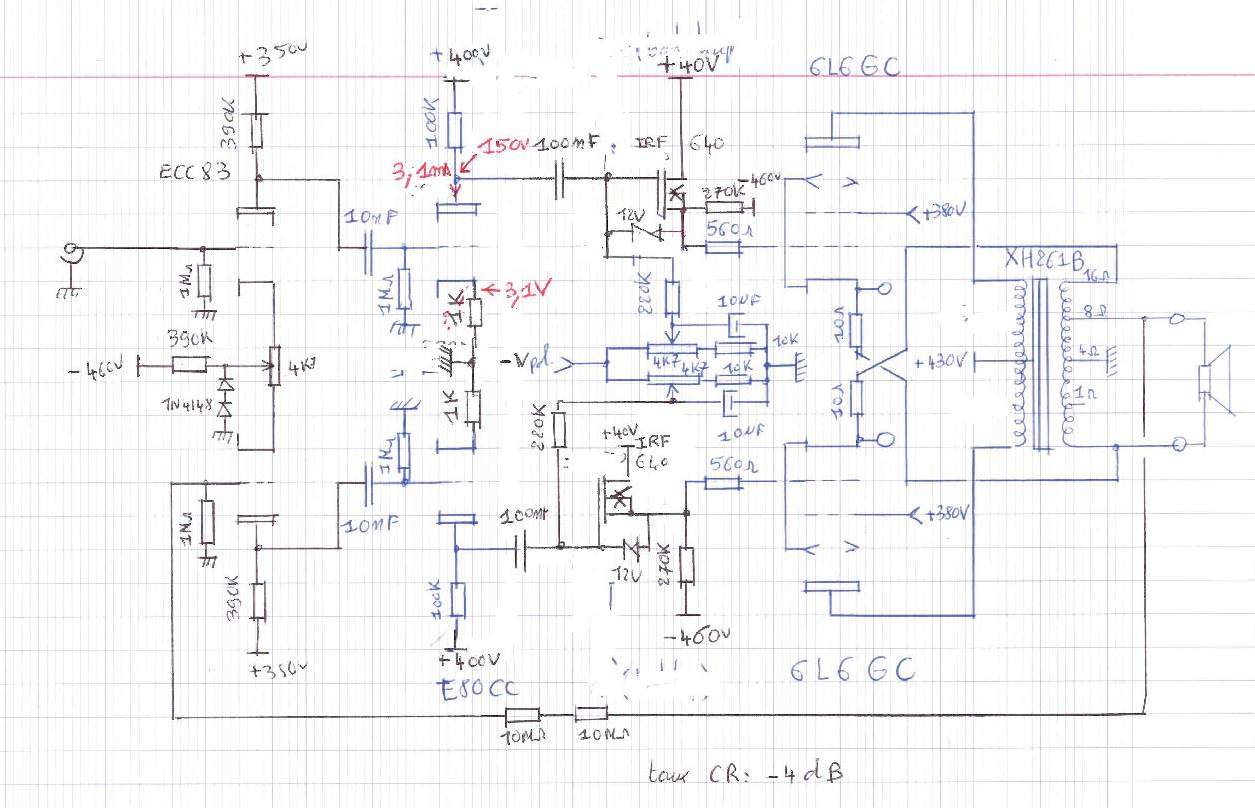 6L6 GC
+350V
+400V
+40V
390K
100K
150V
100nF
IRF 640
ECC83
3,1mA
270K
-460V
12V
560Ω
+380V
10nF
XH261B
16Ω
1MΩ
1MΩ
3,1V
1K
220K
10UF
10Ω
8Ω
390K
-460V
4K7
-Vpol
4K7
10K
4K7
10K
+430V
4Ω
1N4148
1K
10Ω
1Ω
220K
10UF
+40V
IRF
640
1MΩ
560Ω
1MΩ
10nF
100nF
+380V
12V
270K
390K
100K
-460V
+350V
+400V
E80CC
6L6 GC
10MΩ
10MΩ
taux CR: -4dB